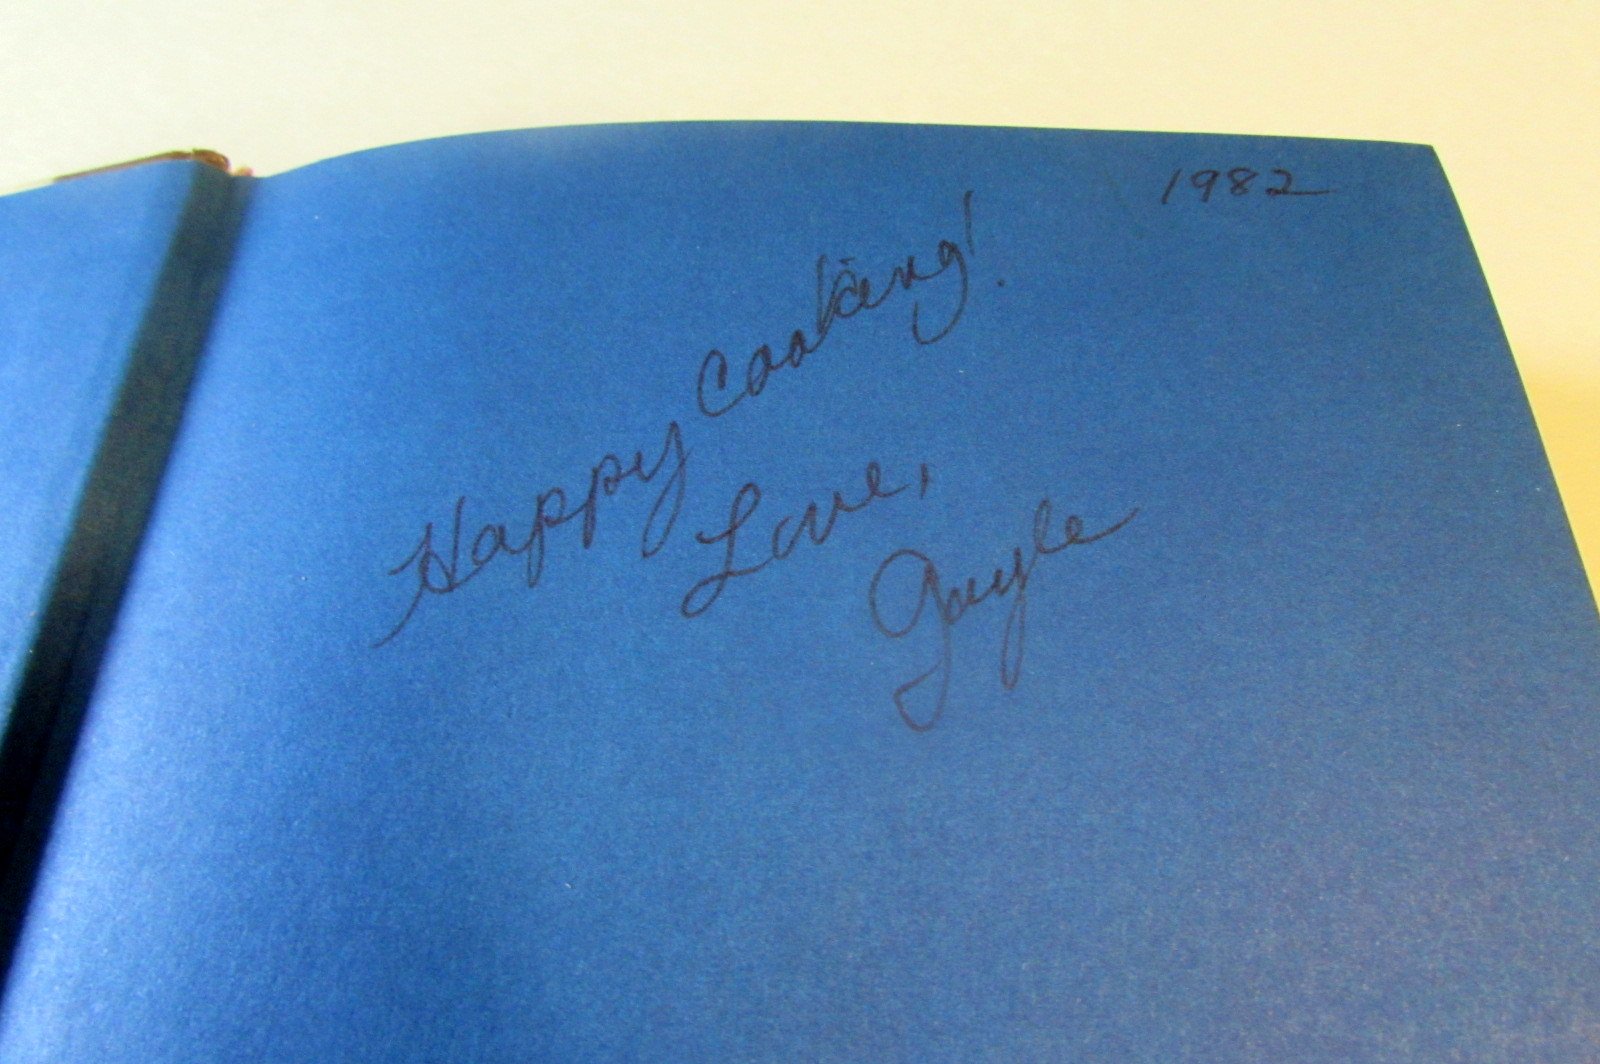 1982
Happy Cooking!
Love,
Gayle